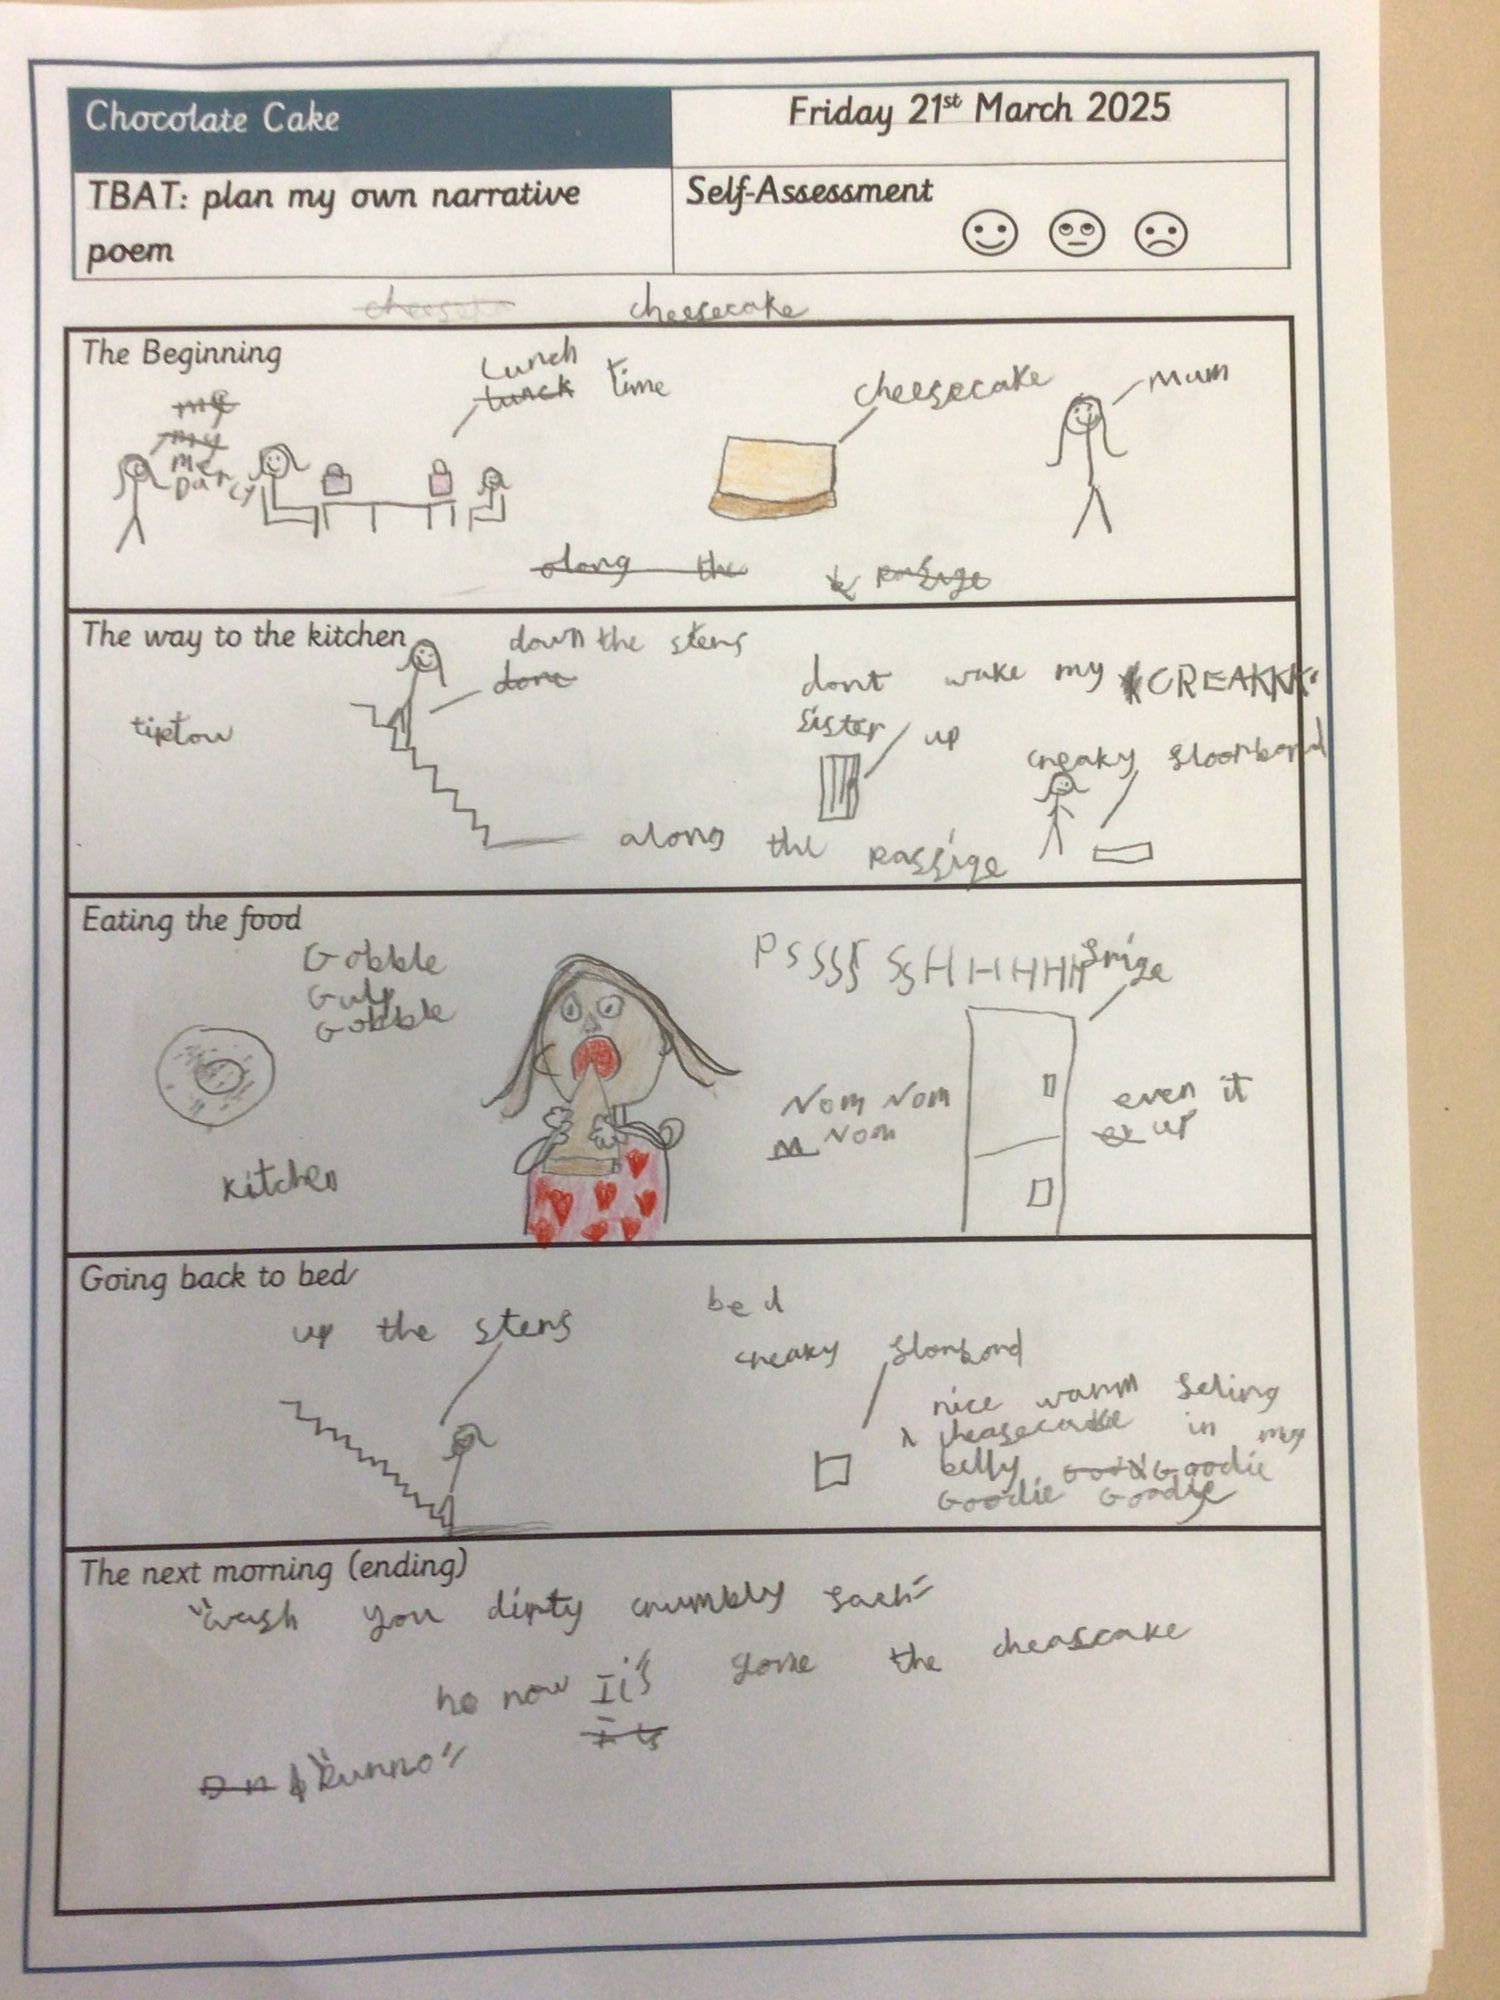 Chocolate Cake
Friday 21st March 2025
TBAT: plan my own narrative
poem
Self-Assessment
cheesecake
The Beginning
me
my
me
Darcy
Lunch
lunch time
cheesecake
mum
along the passige
The way to the kitchen
down the steps
done
tiptow
dont wake my
sister up
CREAKKK
creaky floorbord
along the passige
Eating the food
Gobble
Gulp
Gobble
PSSSSSSHHHHHH
frige
Nom Nom
Nom
even it
up
kitchen
Going back to bed
up the steps
bed
creaky florbord
nice warm feling
cheasecake in my
belly Goodie
Goodie Goodie
The next morning (ending)
"wash you dirty crumbly face"
ho now It's gone the cheascake
"Dunno"